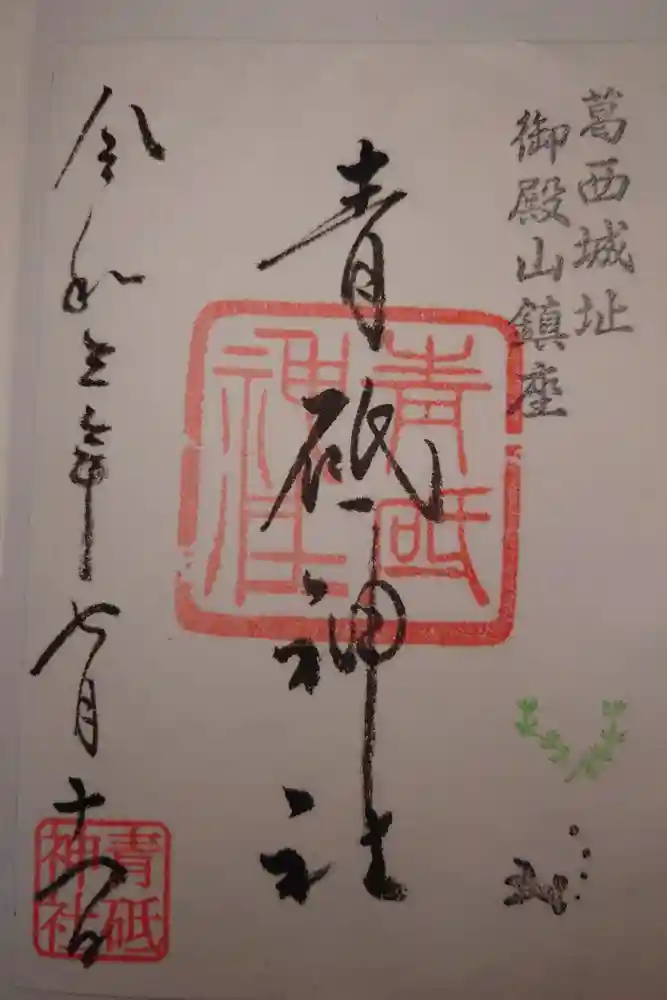 葛西城址
御殿山鎮座
青砥神社
青砥神社
令和三年七月十八日
青砥神社